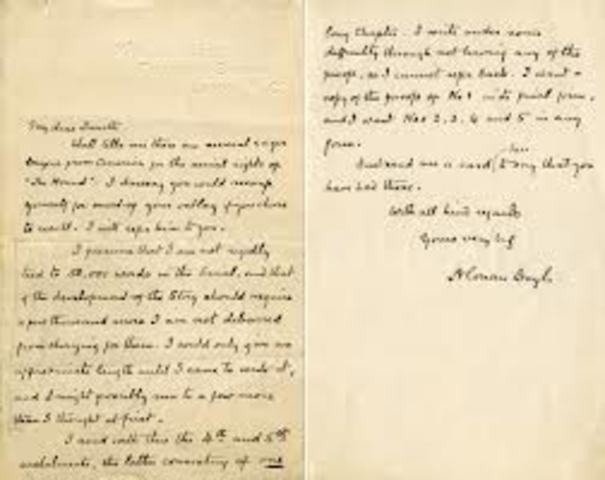 My dear Smith
Watt tells me there are several eager
from America for the serial rights of
"The Hound". I you would
your selling
to result. I will refer him to you.
I presume that I am not rigidly
tied to 50,000 words in the Serial, and that
if the development of the Story should require
a few thousand more I am not debarred
from charging for them. I could only give an
approximate length until I came to write it,
and I might possibly run to a few more
than I thought at first.
I send with this the 4th and 5th
instalments, the latter consisting of one
long Chapter. I write under some
difficulty through not having any of the
proofs, so I cannot refer back. I want a
copy of the proofs of No 1 in its final form,
and I want Nos 2, 3, 4 and 5 in any
form.
Just send me a card to say that you
have had these.
With all kind regards
Yours very
A Conan Doyle